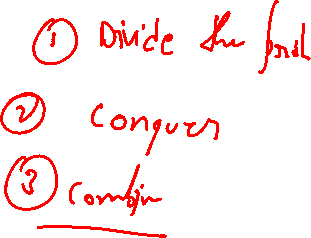 ① Divide the prob
② Conquer
③ Combin